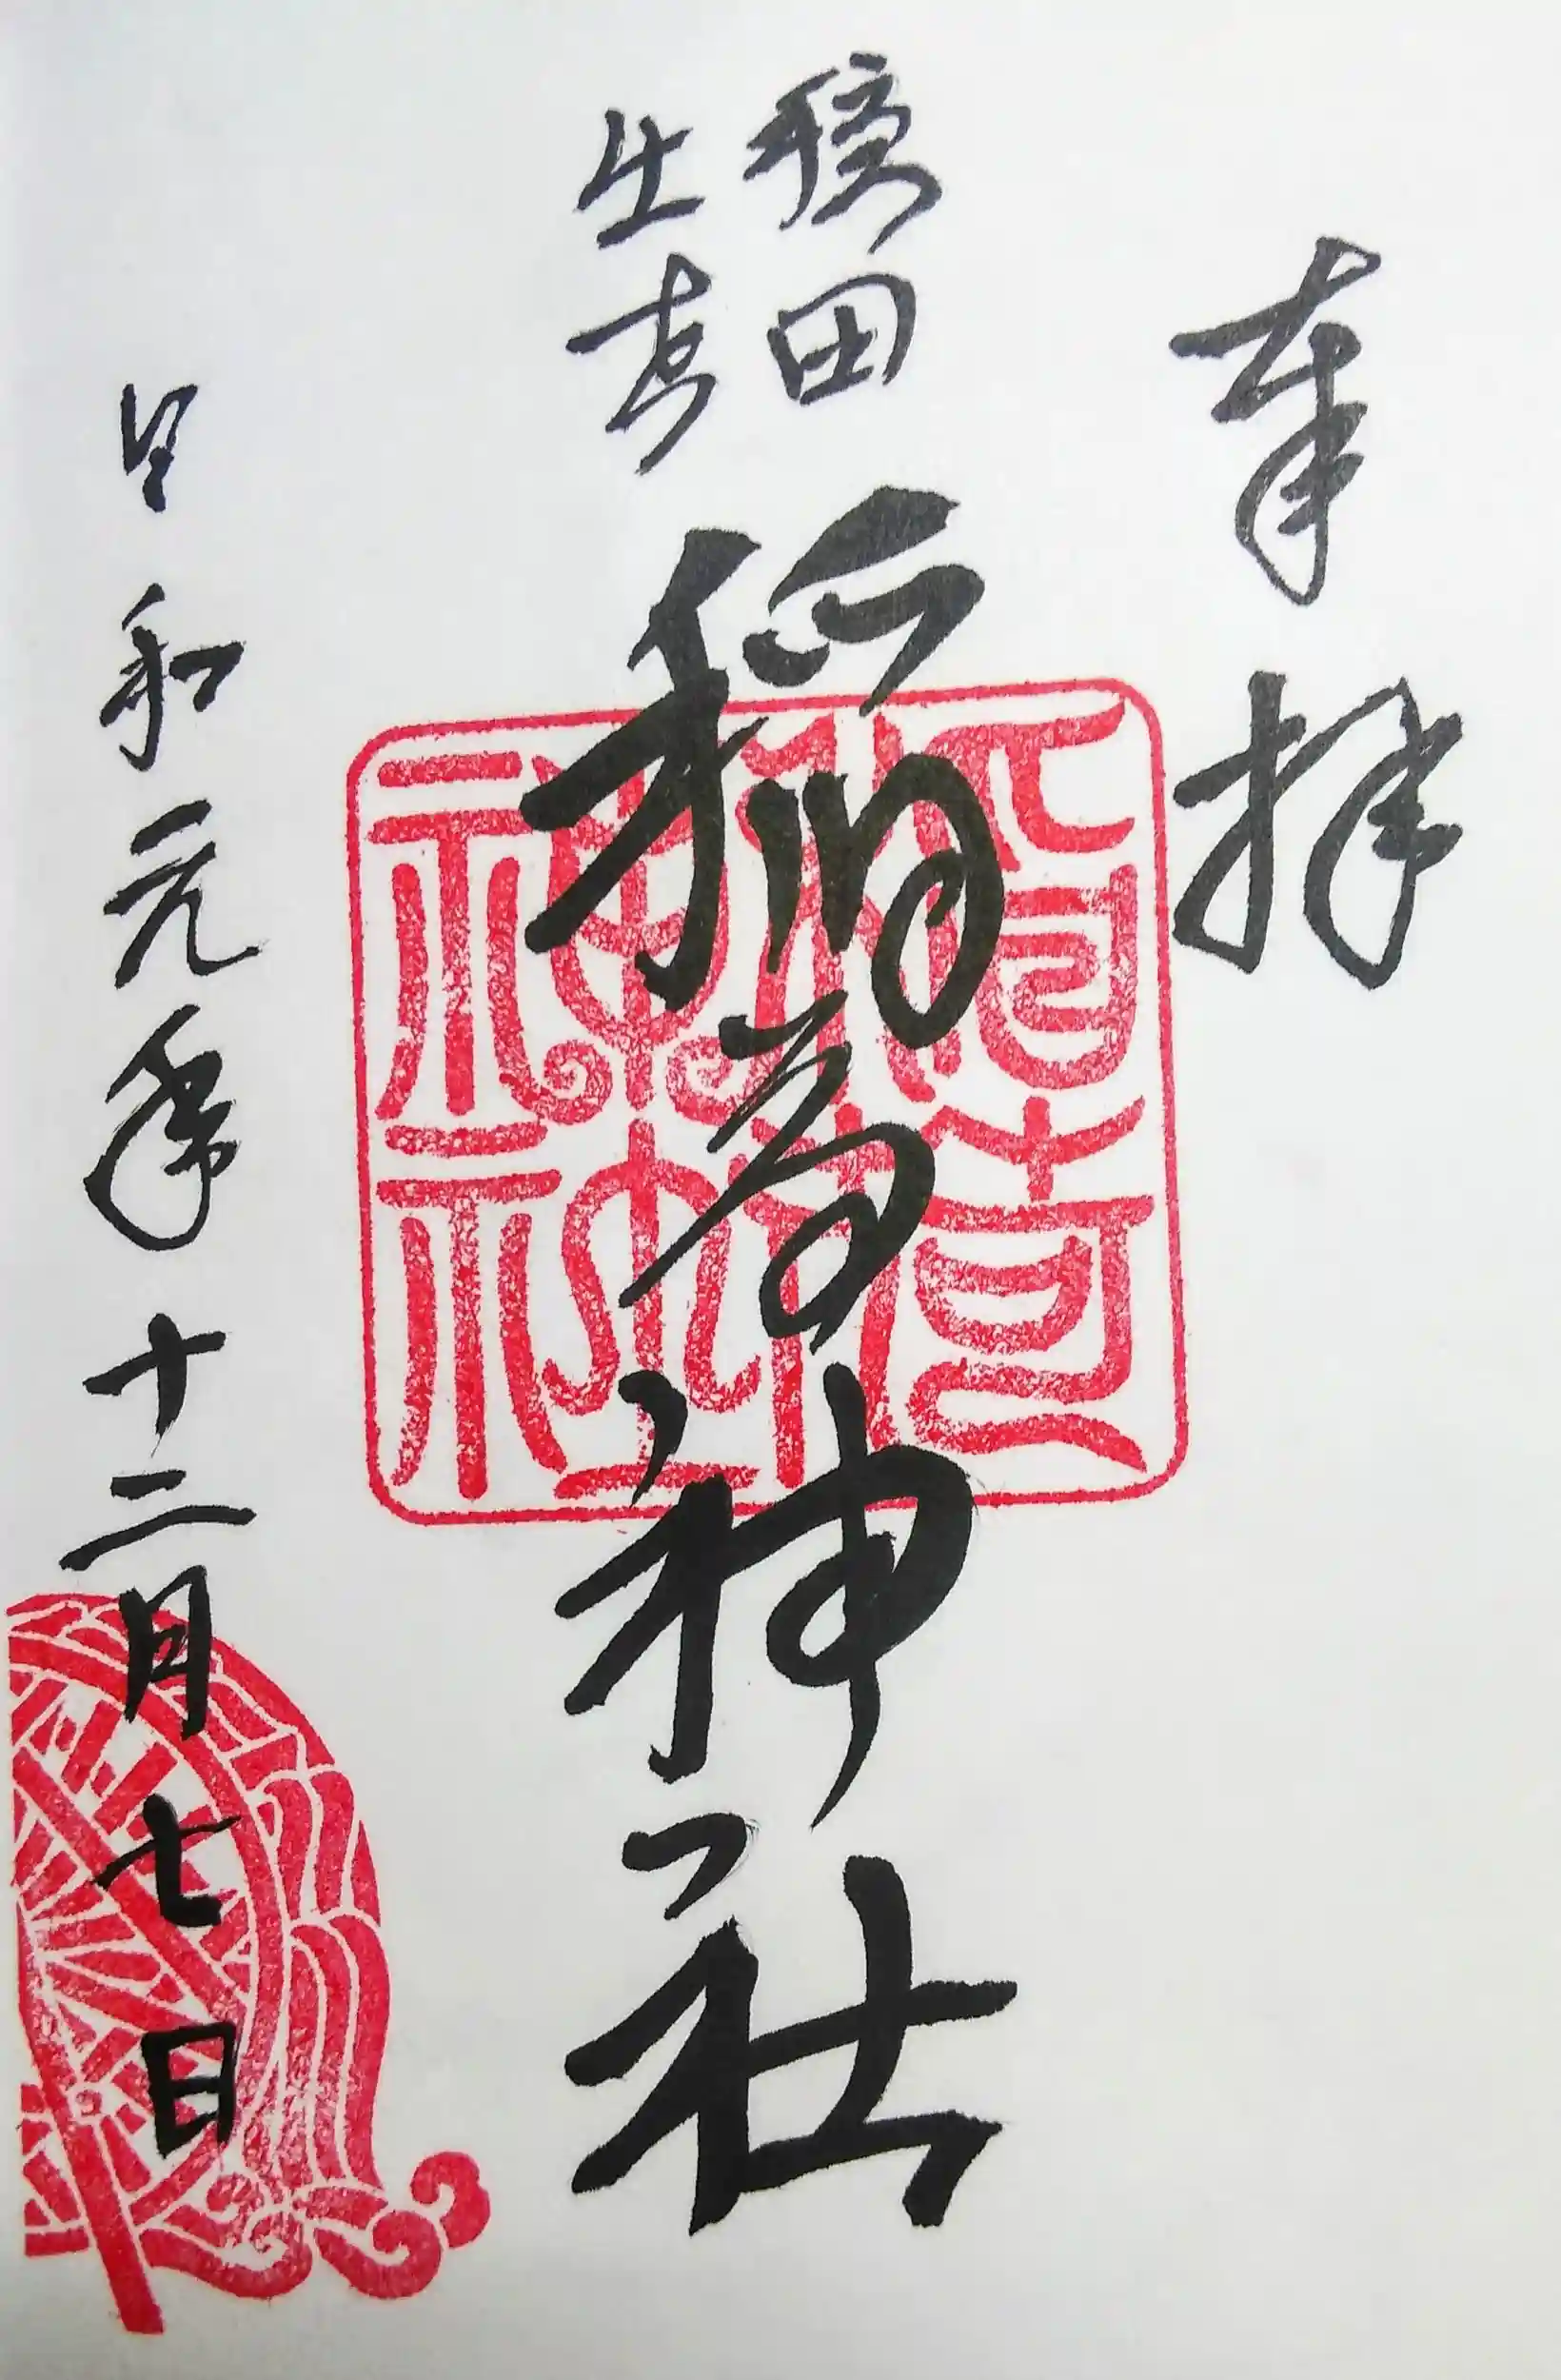 奉拝
稲荷神社
稲荷神社
令和元年十二月七日